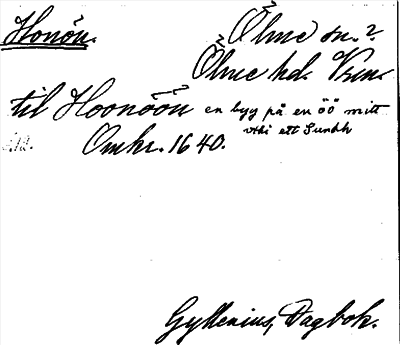 Honön.
Ölme sn.?
Ölme hd. Vrml.
til Hoonöön en byy på en öö mitt
uthi ett Sundh
Omkr. 1640.
Gyllenius, Dagbok.